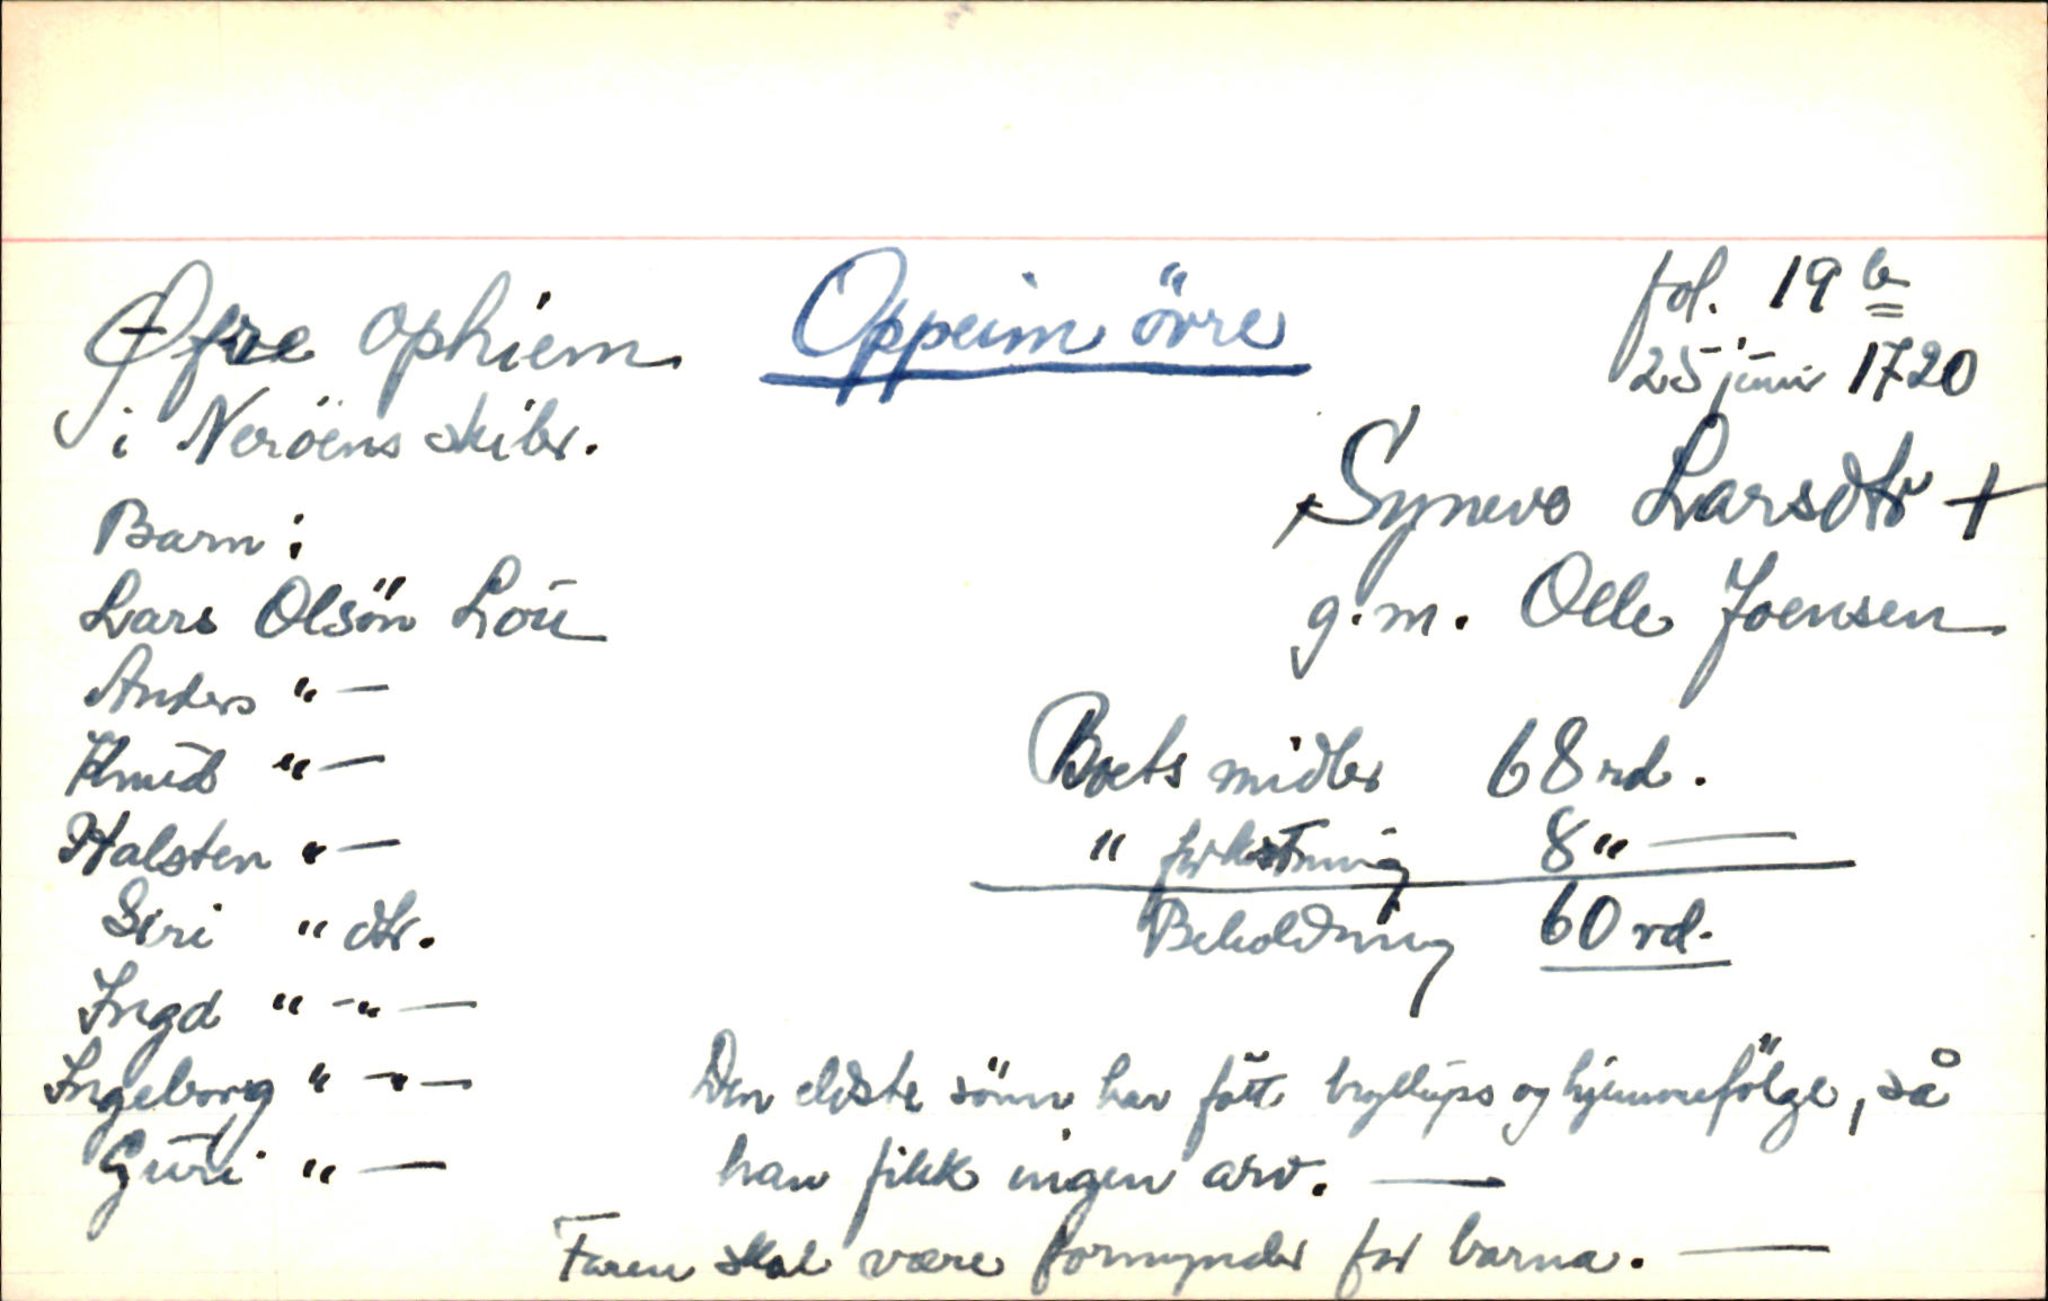 Øfre Ophiem
i Neröens skibr.
Oppeim övre
fol. 19 b
25 juni 1720
Synevo Larsdtr +
g.m. Olle Joensen
Barn:
Lars Olsön Loü
Anders " —
Knud " —
Halsten " —
Siri " dtr.
Ingd " - " —
Ingeborg " - " —
Guri " —
Boets midler 68 rd.
" forkostning 8 " —
Beholdning 60 rd.
Den eldste sönn har fått bryllups og hjemmefölge, så
han fikk ingen arv. —
Faren skal være formynder for barna. —